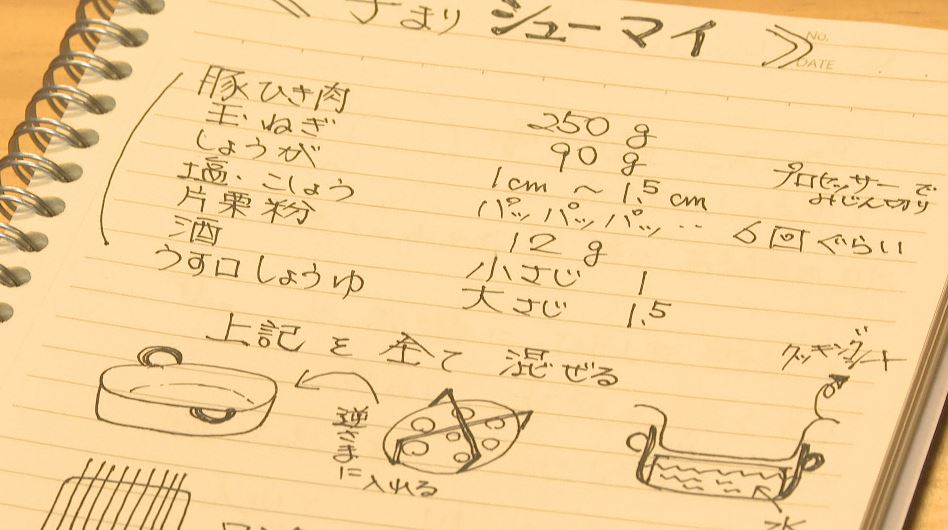 《 手まり シューマイ 》
NO.
DATE
豚ひき肉 250 g
玉ねぎ 90 g プロセッサーで
みじん切り
しょうが 1cm 〜 1.5 cm
塩、こしょう パッパッパッ‥ 6回ぐらい
片栗粉 12 g
酒 小さじ 1
うす口しょうゆ 大さじ 1.5
上記を全て混ぜる
クッキングシート
逆さまに
入れる
水